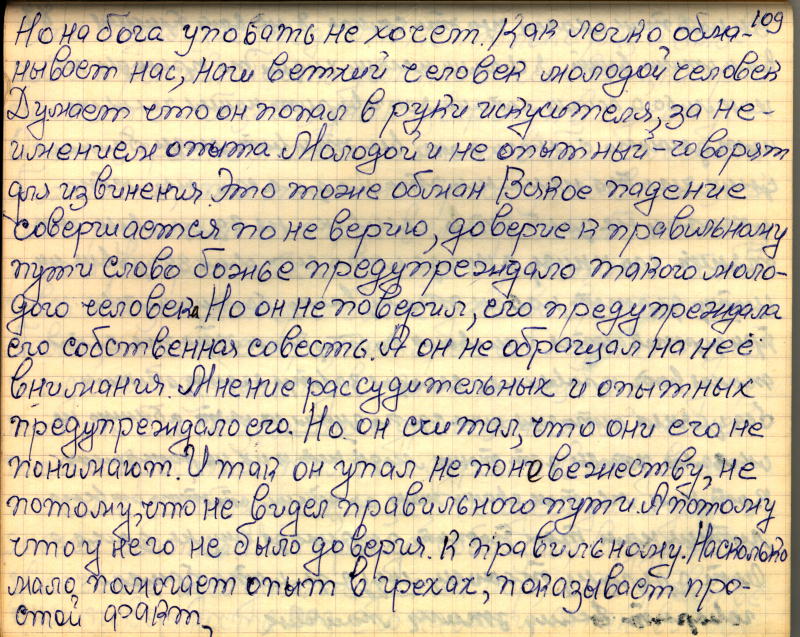 109
Но на бога уповать не хочет. Как легко обма-
нывает нас, наш ветхий человек молодой человек
Думает что он попал в руки искусителя, за не-
имением опыта. Молодой и не опытный - говорят
для извинения. Это тоже обман Всякое падение
совершается по не верию, доверие к правильному
пути слово божье предупреждало такого моло-
дого человека Но он не поверил, его предупреждала
его собственная совесть. А он не обращал на неё
внимания. Мнение рассудительных и опытных
предупреждало его. Но он считал, что они его не
понимают. И так он упал не по невежеству, не
потому, что не видел правильного пути. А потому
что у него не было доверия. К правильному. Насколько
мало помогает опыт в грехах, показывает про-
стой факт,